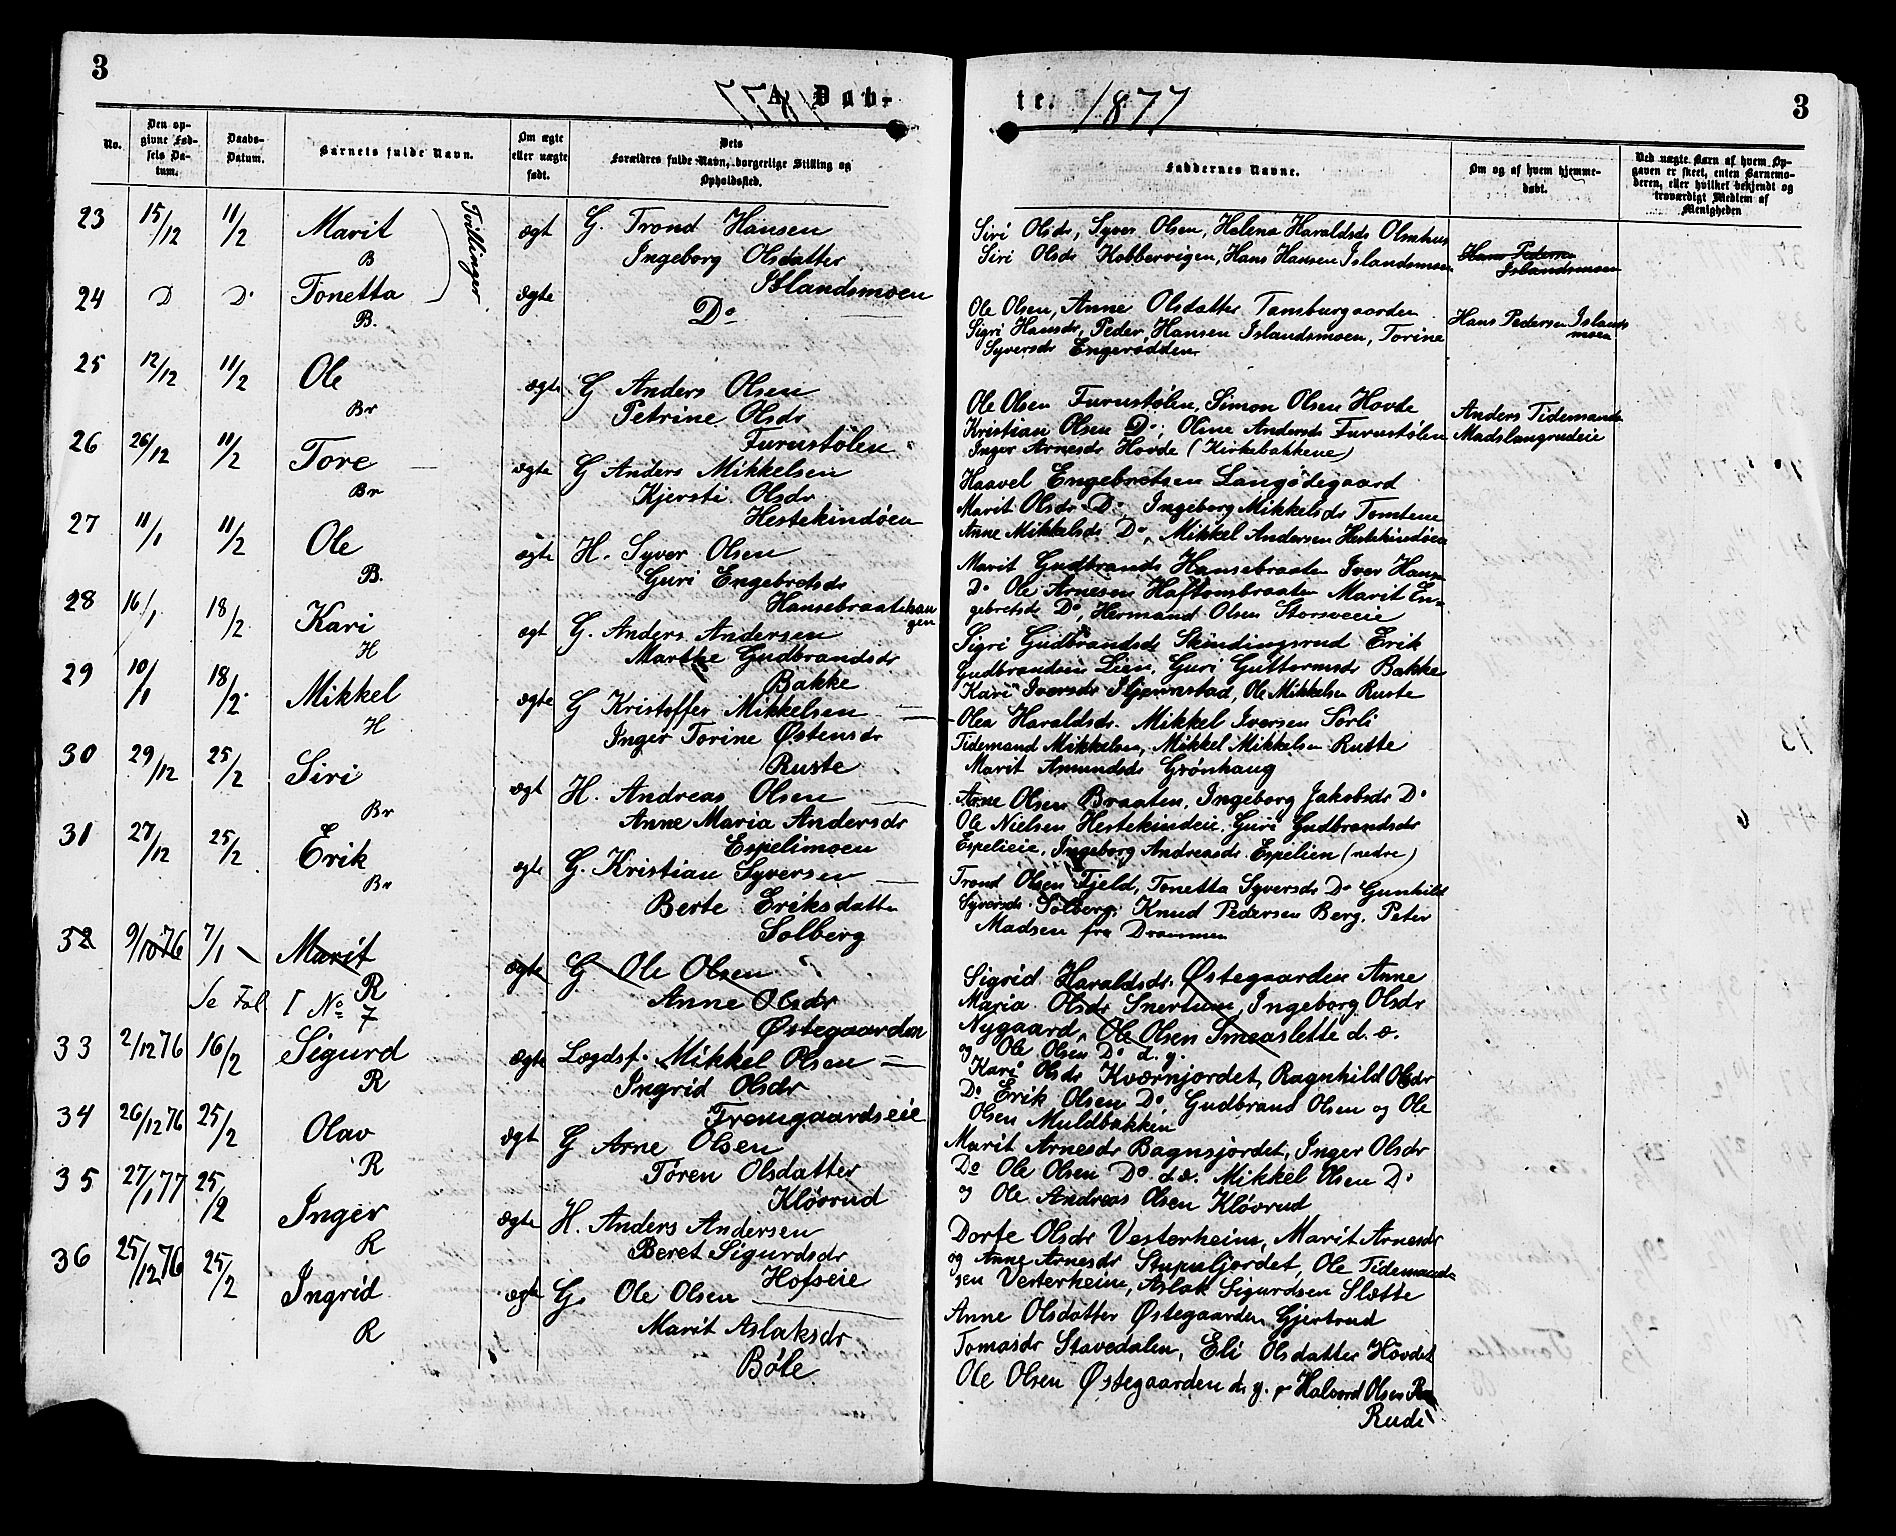 3
1877 A. Døb-
No.
Den op-
givne Fød-
sels Da-
tum.
Daabs-
Datum.
Barnets fulde Navn.
Om ægte
eller uægte
født.
Dets
Forældres fulde Navn, borgerlige Stilling og
Opholdssted.
23 15/12 11/2 Marit Tvillinger ægt G. Trond Hansen
B Ingeborg Olsdatter
Islandsmoen
24 D D° Tonetta ægte D°
B.
25 12/12 11/2 Ole ægte G Anders Olsen
Br Petrine Olsdr
Furustølen
26 26/12 11/2 Tore ægte G Anders Mikkelsen
Br Kjersti Olsdr
Hestekindøen
27 11/1 11/2 Ole ægte H. Syver Olsen
B. Guri Engebretsdr
Hansebraatehau
gen
28 16/1 18/2 Kari ægt G. Anders Andersen
H Marthe Gudbrandsdr
Bakke
29 10/1 18/2 Mikkel ægte G Kristoffer Mikkelsen
H Inger Torine Østensdr
Ruste
30 29/12 25/2 Siri ægt H. Andreas Olsen
Br Anne Maria Andersdr
Espelimoen
31 27/12 25/2 Erik ægte G. Kristian Syversen
Br Berte Eriksdatter
Solberg
32 9/10 76 7/1 Marit ægte G Ole Olsen
R Anne Olsdr
Se Fol. 1 No 7 Østegaarden
33 2/12 76 16/2 Sigurd ægte Lægdsf. Mikkel Olsen
R Ingrid Olsdr
Fremgaardseie
34 26/12 76 25/2 Olav ægt G Arne Olsen
R Tóren Olsdatter
Kløvrud
35 27/1 77 25/2 Inger ægte H. Anders Andersen
R Beret Sigurdsdr
Hofseie
36 25/12 76 25/2 Ingrid ægte G. Ole Olsen
R Marit Aslaksdr
Bøle
te. 1877
3
Faddernes Navne.
Om og af hvem hjemme-
døbt.
Ved uægte Børn af hvem Op-
gaven er skeet, enten Barnemo-
deren, eller hvilket bekjendt og
troværdigt Medlem af
Menigheden
Siri Olsdr, Syver Olsen, Helena Haraldsdr Olmhus
Siri Olsdr Kobbervigen, Hans Hansen Islandsmoen Hans Pedersen
Islandsmoen
Ole Olsen, Anne Olsdatter Tansburgaarden
Sigri Hansdr, Peder Hansen Islandsmoen, Torine Hans Pedersen Islands
moen
Syversdr Engerodden
Ole Olsen Furustølen, Simon Olsen Hovde Anders Tidemands
Kristian Olsen D°, Oline Andersdr Furustølen Madslangrudeie
Inger Arnesdr Hovde (Kirkebakkene)
Haavel Engebretsen Langødegaard
Marit Olsdr D°, Ingeborg Mikkelsdr Tomtene
Anne Mikkelsdr D°, Mikkel Andersen Hestekindøen
Marit Gudbrandsdr Hansebraaten Iver Hansen
D° Ole Arnesen Haftonsbraaten Marit En=
gebretsdr D°, Hermand Olsen Storsveeie
Sigri Gudbrandsdr Skindingsrud Erik
Gudbrandsen Lien, Guri Guttormsdr Bakke
Kari Iversdr Stjernstad, Ole Mikkelsen Ruste
Olea Haraldsdr. Mikkel Iversen Sørli
Tidemand Mikkelsen, Mikkel Mikkelsen Ruste
Marit Amundsdr Grønhaug
Arne Olsen Braaten, Ingeborg Jakobsdr D°
Ole Nielsen Hestekindeie, Guri Gudbrandsdr
Espelieie, Ingeborg Andreasdr Espelien (nedre)
Trond Olsen Fjeld, Tonetta Syversdr D° Gunhild
Syversdr Solberg, Knud Pedersen Berg, Peter
Madsen fra Drammen
Sigrid Haraldsdr. Østegaarden Anne
Maria Olsdr Snertum, Ingeborg Olsdr
Nygaard, Ole Olsen Smeaslette d. æ.
og Ole Olsen D° d. y.
Kari Olsdr Kværnjordet, Ragnhild Olsdr
D° Erik Olsen D°, Gudbrand Olsen og Ole
Olsen Muldbakken
Marit Arnesdr Bagnsjordet, Inger Olsdr
D° Ole Olsen D° d.æ. Mikkel Olsen D°
og Ole Andreas Olsen Kløvrud
Dorte Olsdr Vesterheim, Marit Arnesdr
og Anne Arnesdr Stupuljordet, Ole Tidemand-
sen Vesterheim, Aslak Sigurdsen Slætte
Anne Olsdatter Østegaarden Gjertrud
Tomasdr Stavedalen, Eli Olsdatter Hovdet
Ole Olsen Østegaarden d. y. & Halvord Olsen
Rudi